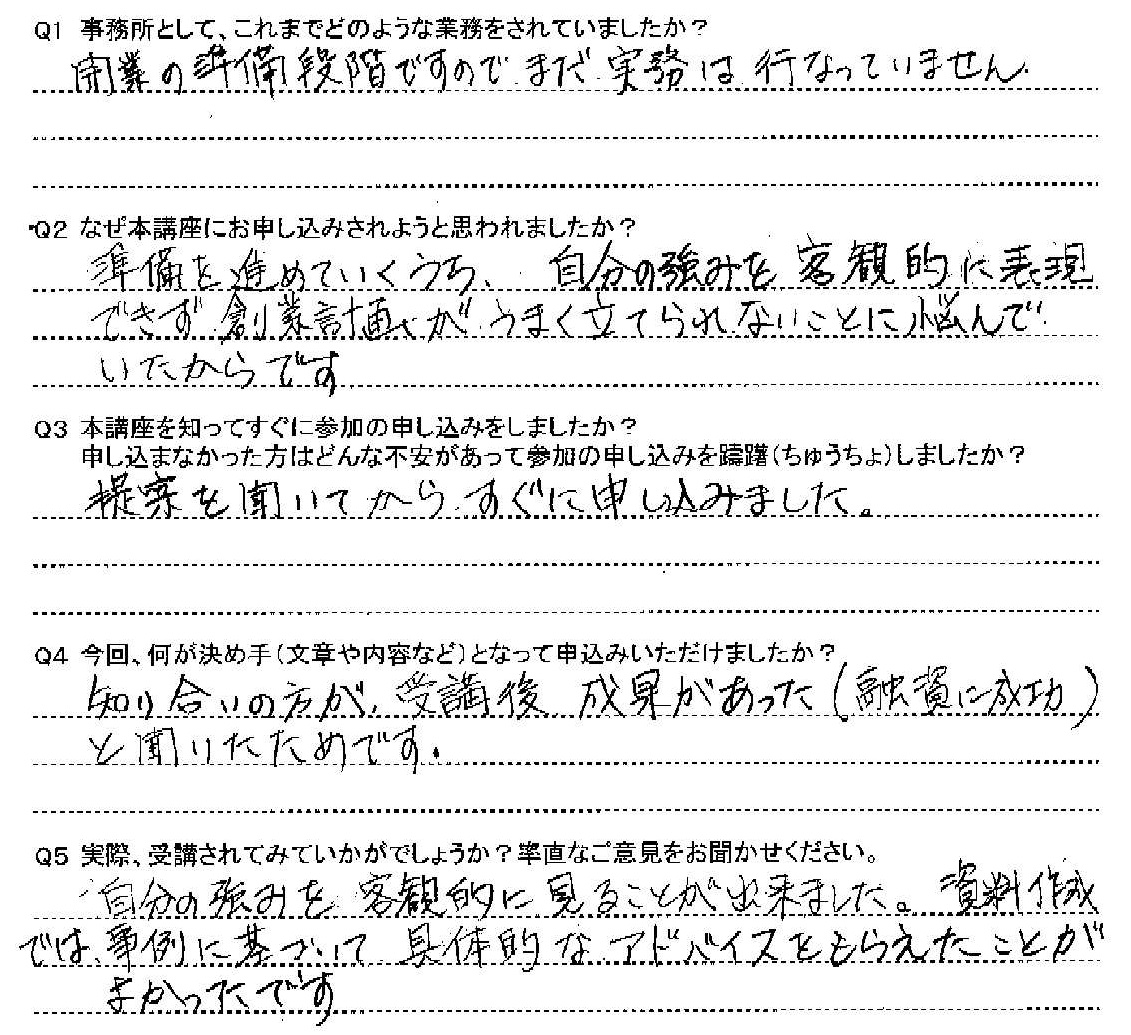 Q1 事務所として、これまでどのような業務をされていましたか？
開業の準備段階ですのでまだ実務は行なっていません.
Q2 なぜ本講座にお申し込みされようと思われましたか？
準備を進めていくうち、自分の強みを客観的に表現
できず創業計画がうまく立てられないことに悩んで
いたからです
Q3 本講座を知ってすぐに参加の申し込みをしましたか？
申し込まなかった方はどんな不安があって参加の申し込みを躊躇（ちゅうちょ）しましたか？
提案を聞いてからすぐに申し込みました。
Q4 今回、何が決め手（文章や内容など）となって申込みいただけましたか？
知り合いの方が、受講後成果があった（融資に成功）
と聞いたためです.
Q5 実際、受講されてみていかがでしょうか？率直なご意見をお聞かせください。
自分の強みを客観的に見ることが出来ました。資料作成
では、事例に基づいて具体的なアドバイスをもらえたことが
よかったです